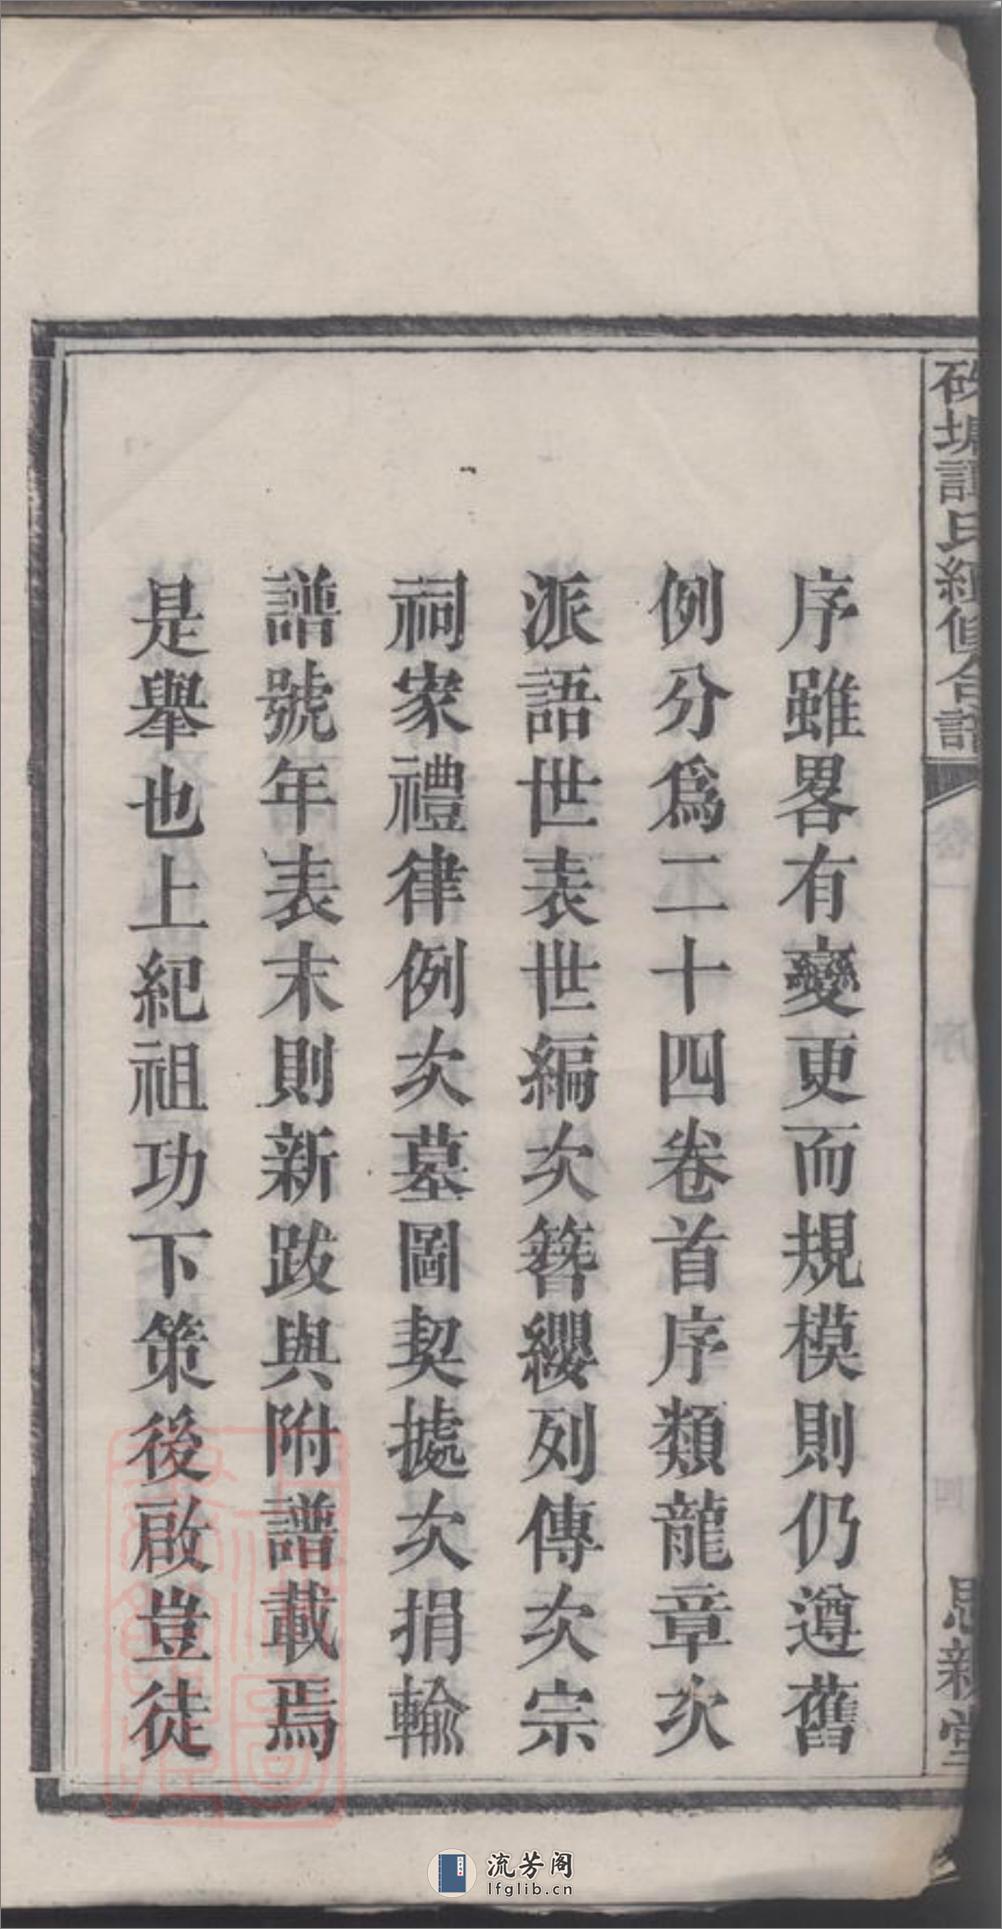 序雖畧有變更而規模則仍遵舊
例分爲二十四卷首序類龍章次
派語世表世編次簪纓列傳次宗
祠家禮律例次墓圖契據次捐輸
譜號年表末則新跋與附譜載焉
是舉也上紀祖功下策後啟豈徒
塘譚氏續修合譜
思親堂
流芳阁
lfglib.cn